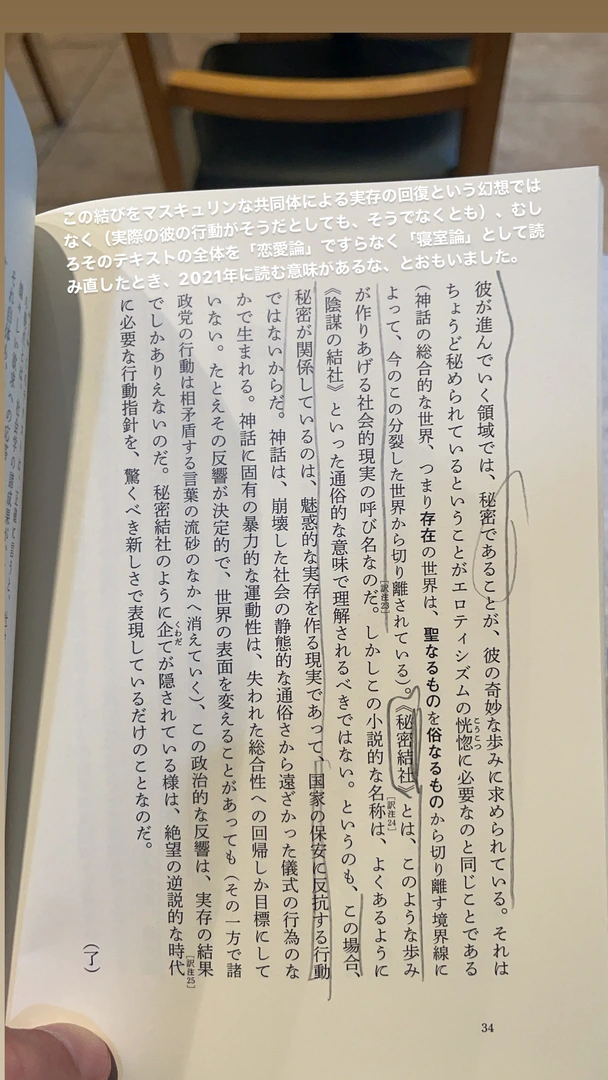 この結びをマスキュリンな共同体による実存の回復という幻想では
なく（実際の彼の行動がそうだとしても、そうでなくとも）、むし
ろそのテキストの全体を「恋愛論」ですらなく「寝室論」として読
み直したとき、2021年に読む意味があるな、とおもいました。
彼が進んでいく領域では、秘密であることが、彼の奇妙な歩みに求められている。それは
ちょうど秘められているということがエロティシズムの恍惚に必要なのと同じことである
こうこつ
（神話の総合的な世界、つまり存在の世界は、聖なるものを俗なるものから切り離す境界線に
よって、今のこの分裂した世界から切り離されている）。《秘密結社》とは、このような歩み
が作りあげる社会的現実の呼び名なのだ。しかしこの小説的な名称は、よくあるように
［訳注23］
［訳注24］
《陰謀の結社》といった通俗的な意味で理解されるべきではない。というのも、この場合、
秘密が関係しているのは、魅惑的な実存を作る現実であって、国家の保安に反抗する行動
ではないからだ。神話は、崩壊した社会の静態的な通俗さから遠ざかった儀式の行為のな
かで生まれる。神話に固有の暴力的な運動性は、失われた総合性への回帰しか目標にして
いない。たとえその反響が決定的で、世界の表面を変えることがあっても（その一方で諸
政党の行動は相矛盾する言葉の流砂のなかへ消えていく）、この政治的な反響は、実存の結果
でしかありえないのだ。秘密結社のように企てが隠されている様は、絶望の逆説的な時代
くわだ
［訳注25］
に必要な行動指針を、驚くべき新しさで表現しているだけのことなのだ。
（了）
34